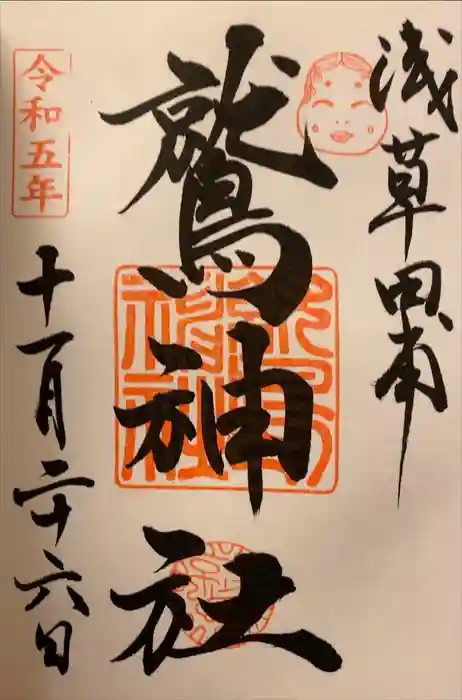 浅草田甫
鷲神社
令和五年
十一月二十六日